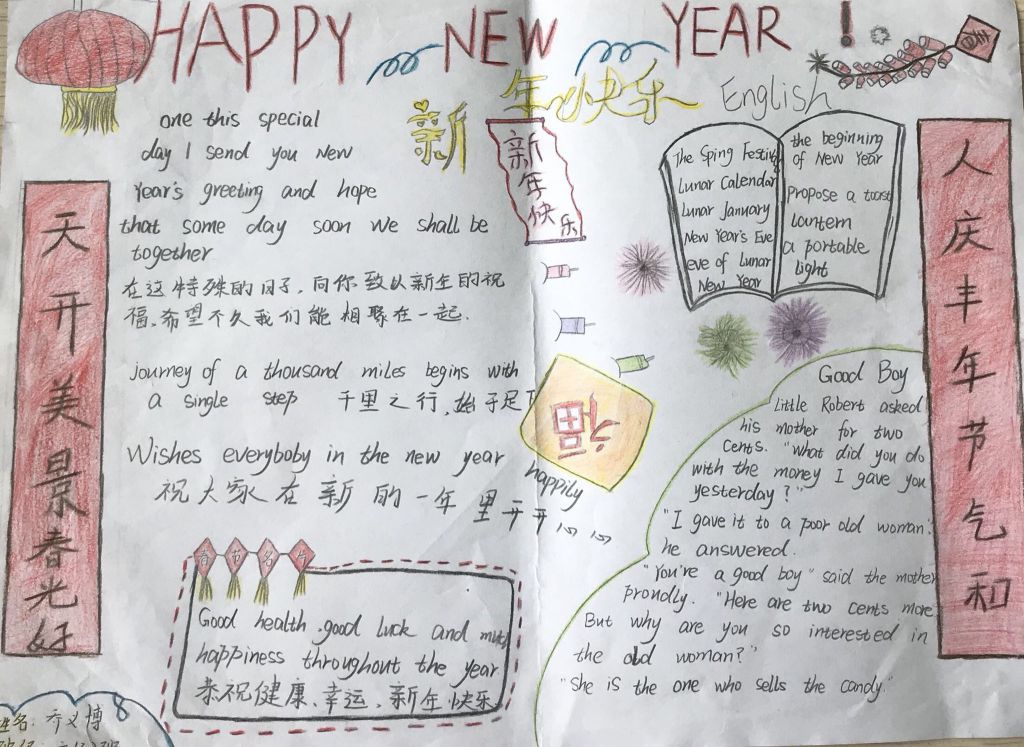 HAPPY NEW YEAR !
新年快乐
English
one this special
day I send you New
Year's greeting and hope
that some day soon we shall be
together
在这特殊的日子,向你致以新年的祝
福,希望不久我们能相聚在一起.
journey of a thousand miles begins with
a single step 千里之行,始于足下
Wishes everyboby in the new year happily
祝大家在新的一年里开开心心
Good health ,good luck and much
happiness throughout the year
恭祝健康、幸运,新年快乐
天开美景春光好
新年快乐
福
The Sping Festivg
Lunar Calendar
Lunar January
New Year's Eve
eve of Lunar
New Year
the beginning
of New Year
propose a toast
lantern
a portable
light
Good Boy
Little Robert asked
his mother for two
cents. "what did you do
with the money I gave you
yesterday?"
"I gave it to a poor old woman."
he answered.
"You're a good boy" said the mother
proudly. "Here are two cents more
But why are you so interested in
the old woman?"
"She is the one who sells the candy."
人庆丰年节气和
春
姓名:乔义博